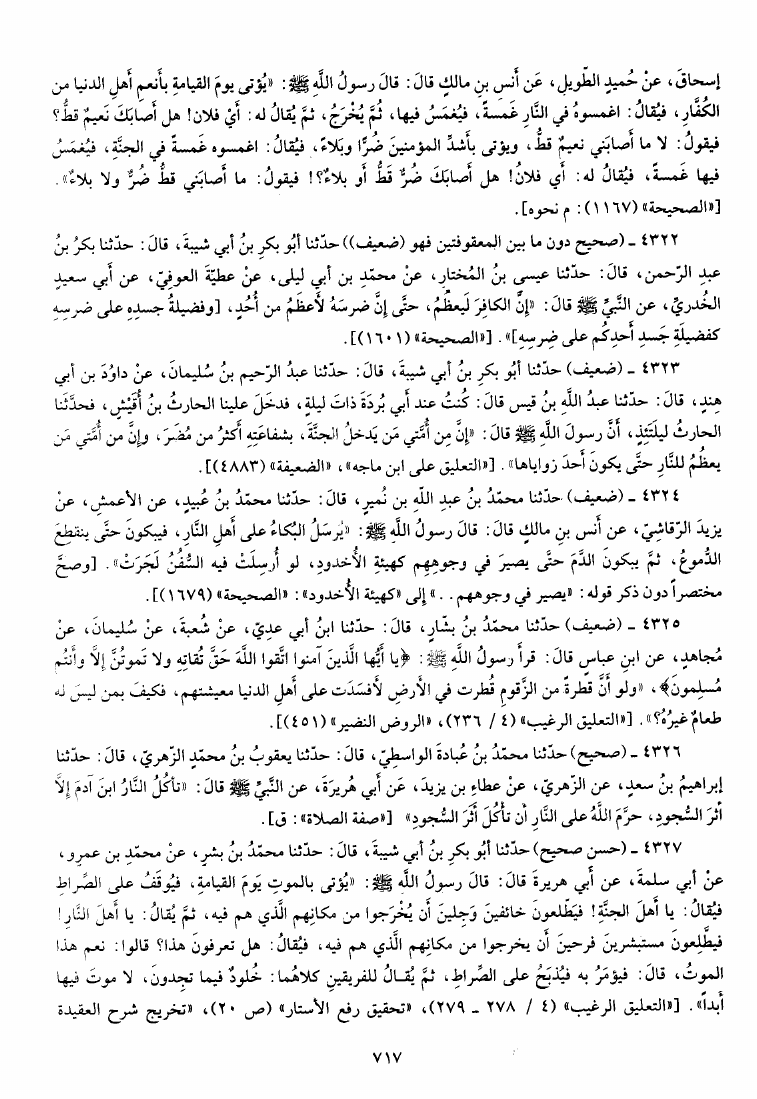 إسحاقَ، عنْ حُميدٍ الطّويلِ، عَن أنسِ بنِ مالكٍ قالَ: قالَ رسولُ اللَّهِ ﷺ: «يُؤتى يومَ القيامةِ بأنعمِ أهلِ الدنيا من
الكُفَّارِ، فيُقالُ: اغمسوهُ في النَّارِ غَمسةً، فيُغمَسُ فيها، ثُمَّ يُخْرَجُ، ثمَّ يُقالُ له: أيْ فلان! هل أصابَكَ نَعيمٌ قطُّ؟
فيقولُ: لا ما أصابَني نعيمٌ قطُّ، ويؤتى بأشدِّ المؤمنينَ ضُرًّا وبَلاءً، فيُقالُ: اغمسوه غَمسةً في الجنَّةِ، فيُغمَسُ
فيها غَمسةً، فيُقالُ له: أي فلانُ! هل أصابَكَ ضُرٌّ قَطُّ أو بلاءٌ؟! فيقولُ: ما أصابَني قطُّ ضُرٌّ ولا بلاءٌ».
[«الصحيحة» (١١٦٧): م نحوه].
٤٣٢٢ ـ (صحيح دون ما بين المعقوفتين فهو (ضعيف)) حدّثنا أبُو بكرِ بنُ أبي شيبةَ، قالَ: حدّثنا بكرُ بنُ
عبدِ الرّحمن، قالَ: حدّثنا عيسى بنُ المُختارِ، عنْ محمّدِ بنِ أبي ليلى، عنْ عطيّةَ العوفيّ، عن أبي سعيدٍ
الخُدريِّ، عن النَّبيِّ ﷺ قالَ: «إنَّ الكافِرَ لَيعظُمُ، حتَّى إنَّ ضرسَهُ لأعظَمُ من أُحُدٍ، [وفضيلةُ جسدِهِ على ضرسِهِ
كفضيلَةِ جَسدِ أحدِكُم على ضِرسِهِ]». [«الصحيحة» (١٦٠١)].
٤٣٢٣ ـ (ضعيف) حدّثنا أبُو بكرِ بنُ أبي شيبةَ، قالَ: حدّثنا عبدُ الرّحيم بنُ سُليمانَ، عنْ داوُدَ بن أبي
هِندٍ، قالَ: حدّثنا عبدُ اللَّهِ بنُ قيس قالَ: كُنتُ عند أبي بُردَةَ ذاتَ ليلةٍ، فدخَلَ علينا الحارثُ بنُ أُقَيْشٍ، فحدَّثَنا
الحارثُ ليلَتَئِذٍ، أنَّ رسولَ اللَّهِ ﷺ قالَ: «إنَّ مِن أُمَّتي مَن يَدخلُ الجنَّةَ، بشفاعَتِهِ أكثرُ من مُضَرَ، وإنَّ من أُمَّتي مَن
يعظُمُ للنَّارِ حتَّى يكونَ أحدَ زواياها». [«التعليق على ابن ماجه»، «الضعيفة» (٤٨٨٣)].
٤٣٢٤ ـ (ضعيف) حدّثنا محمّدُ بنُ عبدِ اللَّهِ بن نُميرٍ، قالَ: حدّثنا محمّدُ بنُ عُبيدٍ، عن الأعمشِ، عنْ
يزيدَ الرّقاشيّ، عن أنسِ بنِ مالكٍ قالَ: قالَ رسولُ اللَّهِ ﷺ: «يُرسَلُ البُكاءُ على أهلِ النَّارِ، فيبكونَ حتَّى ينقطِعَ
الدُّموعُ، ثمَّ يبكونَ الدَّمَ حتَّى يصيرَ في وجوهِهِم كهيئةِ الأُخدودِ، لو أُرسِلَتْ فيه السُّفُنُ لَجَرَتْ». [وصحَّ
مختصراً دون ذكر قوله: «يصير في وجوههم . .» إلى «كهيئة الأخدود»: «الصحيحة» (١٦٧٩)].
٤٣٢٥ ـ (ضعيف) حدّثنا محمّدُ بنُ بشّارٍ، قالَ: حدّثنا ابنُ أبي عديّ، عنْ شُعبةَ، عنْ سُليمانَ، عنْ
مُجاهدٍ، عن ابنِ عباسٍ قالَ: قرأَ رسولُ اللَّهِ ﷺ: ﴿يا أيُّها الَّذينَ آمنوا اتَّقوا اللَّهَ حَقَّ تُقاتِهِ ولا تَموتُنَّ إلاَّ وأنتُم
مُسلِمونَ﴾، «ولو أنَّ قطرةً من الزَّقومِ قُطرت في الأرضِ لأفسَدَت على أهلِ الدنيا معيشتهم، فكيفَ بمن ليسَ له
طعامٌ غيرُهُ؟». [«التعليق الرغيب» (٤ / ٢٣٦)، «الروض النضير» (٤٥١)].
٤٣٢٦ ـ (صحيح) حدّثنا محمّدُ بنُ عُبادةَ الواسطيّ، قالَ: حدّثنا يعقوبُ بنُ محمّدٍ الزّهريّ، قالَ: حدّثنا
إبراهيمُ بنُ سعدٍ، عن الزّهريّ، عنْ عطاءِ بن يزيدَ، عَن أبي هُريرَةَ، عن النَّبيِّ ﷺ قالَ: «تأكُلُ النَّارُ ابنَ آدمَ إلاَّ
أثرَ السُّجودِ، حرَّمَ اللَّهُ على النَّارِ أن تأكُلَ أثَرَ السُّجودِ» [«صفة الصلاة»: ق].
٤٣٢٧ ـ (حسن صحيح) حدّثنا أبُو بكرِ بنُ أبي شيبةَ، قالَ: حدّثنا محمّدُ بنُ بشرٍ، عنْ محمّدِ بن عمرو،
عنْ أبي سلمةَ، عن أبي هريرةَ قالَ: قالَ رسولُ اللَّهِ ﷺ: «يُؤتى بالموتِ يَومَ القيامةِ، فيُوقَفُ على الصِّراطِ
فيُقالُ: يا أهلَ الجنَّةِ! فيَطَّلعونَ خائفينَ وَجِلينَ أن يُخْرَجوا من مكانِهم الَّذي هم فيه، ثمَّ يُقالُ: يا أهلَ النَّارِ!
فيطَّلِعونَ مستبشرينَ فرحينَ أن يخرجوا من مكانِهم الَّذي هم فيه، فيُقالُ: هل تعرفونَ هذا؟ قالوا: نعم هذا
الموتُ، قالَ: فيؤمَرُ به فيُذبَحُ على الصِّراطِ، ثمَّ يُقــالُ للفريقينِ كلاهُما: خُلودٌ فيما تجِدونَ، لا موتَ فيها
أبداً». [«التعليق الرغيب» (٤ / ٢٧٨ ـ ٢٧٩)، «تحقيق رفع الأستار» (ص ٢٠)، «تخريج شرح العقيدة
٧١٧